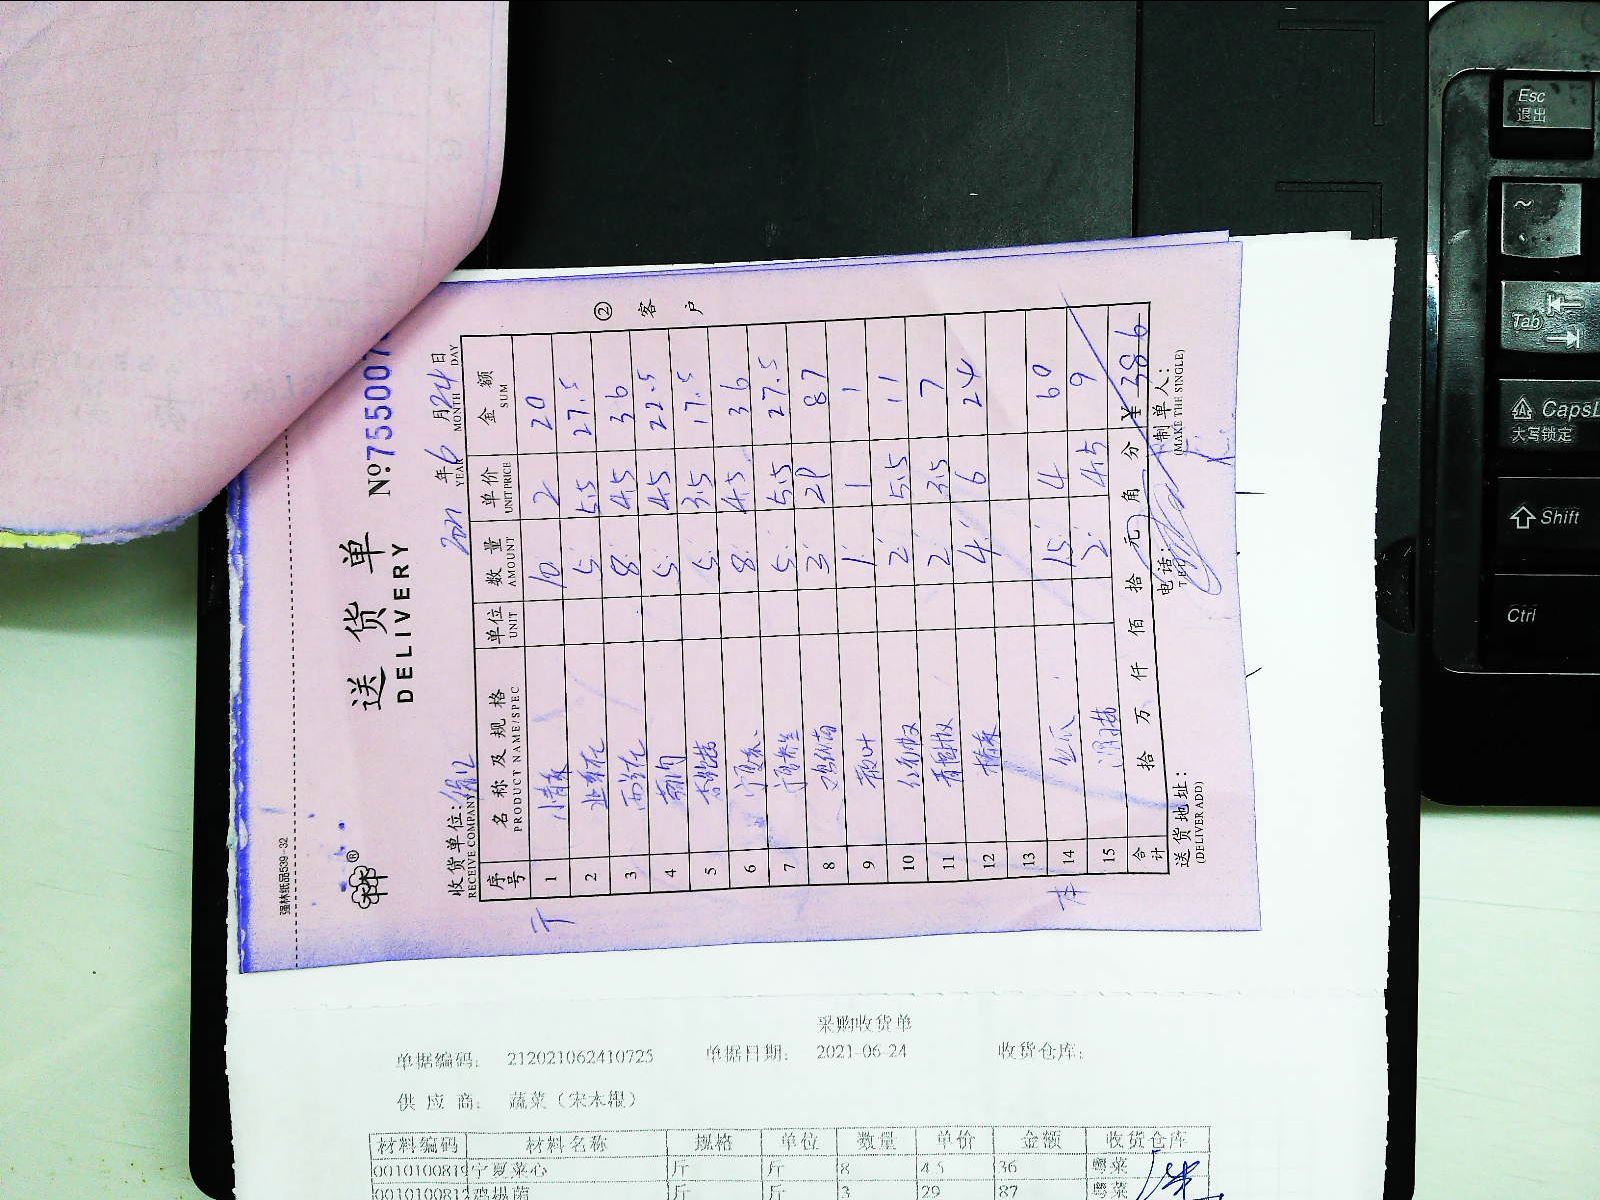 强林纸品539-32
送货单
DELIVERY
№755007
收货单位:
RECEIVE COMPANY
2021年6月24日
YEAR MONTH DAY
序号 名称及规格 单位 数量 单价 金额
PRODUCT NAME/SPEC UNIT AMOUNT UNIT PRICE SUM
1 小青菜 10 2 20
2 5 5.5 27.5
3 西兰花 8 4.5 36
4 5 4.5 22.5
5 5 3.5 17.5
6 宁夏菜心 8 4.5 36
7 5 5.5 27.5
8 鸡枞菌 3 29 87
9 1 1 1
10 红尖椒 2 5.5 11
11 青尖椒 2 3.5 7
12 4 6 24
13
14 丝瓜 15 4 60
15 2 4.5 9
合计 拾 万 仟 佰 拾 元 角 分 ¥ 386
送货地址:
(DELIVER ADD)
电话:
TEL
制单人:
(MAKE THE SINGLE)
② 客户
采购收货单
单据编码: 212021062410725 单据日期: 2021-06-24 收货仓库:
供应商: 蔬菜(宋本银)
材料编码 材料名称 规格 单位 数量 单价 金额 收货仓库
0010100819 宁夏菜心 斤 斤 8 4.5 36 粤菜
0010100812 鸡枞菌 斤 斤 3 29 87 粤菜
Esc
退出
~
Tab
CapsL
大写锁定
Shift
Ctrl